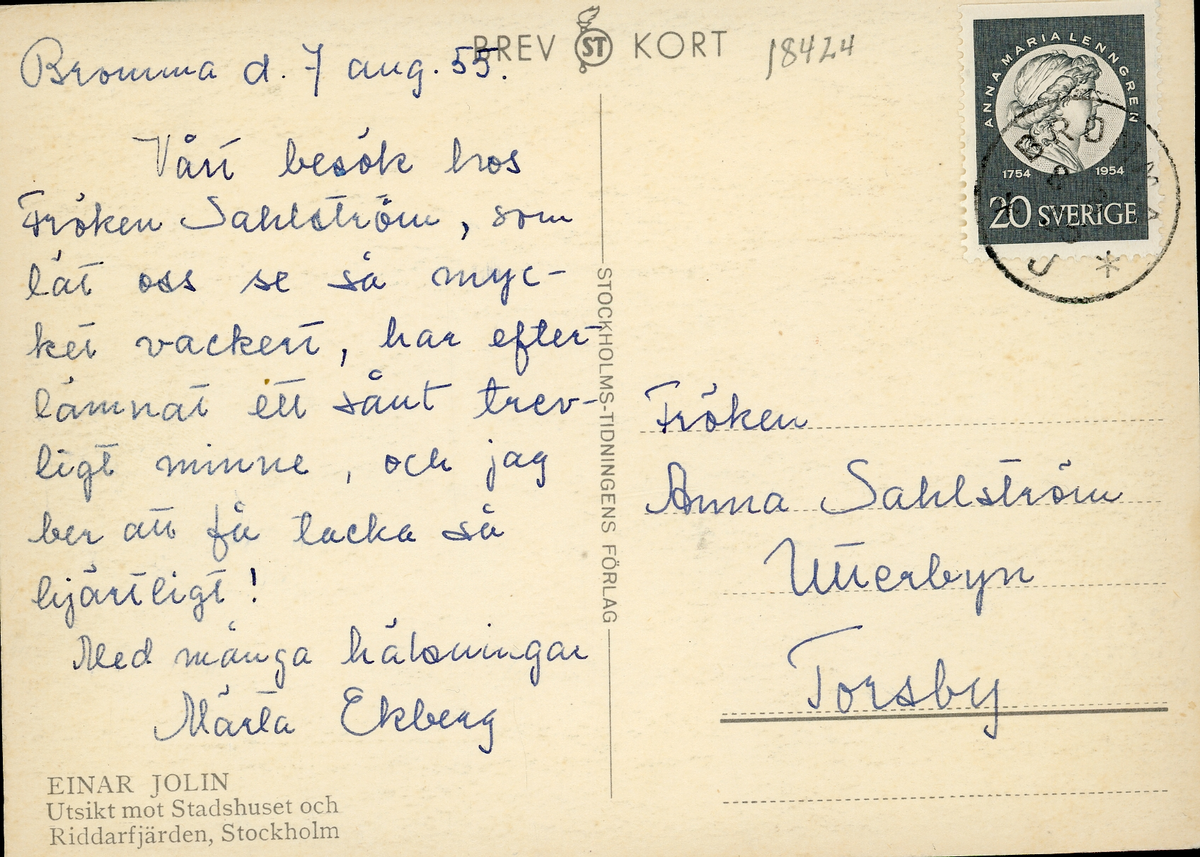 BREV ST KORT
18424
Bromma d. 7 aug. 55.
Vårt besök hos
Fröken Sahlström, som
lät oss se så myc-
ket vackert, har efter-
lämnat ett sånt trev-
ligt minne, och jag
ber att få tacka så
hjärtligt!
Med många hälsningar
Märta Ekberg
EINAR JOLIN
Utsikt mot Stadshuset och
Riddarfjärden, Stockholm
STOCKHOLMS-TIDNINGENS FÖRLAG
ANNA MARIA LENNGREN
1754 1954
20 SVERIGE
BROMMA
Fröken
Anna Sahlström
Utterbyn
Torsby